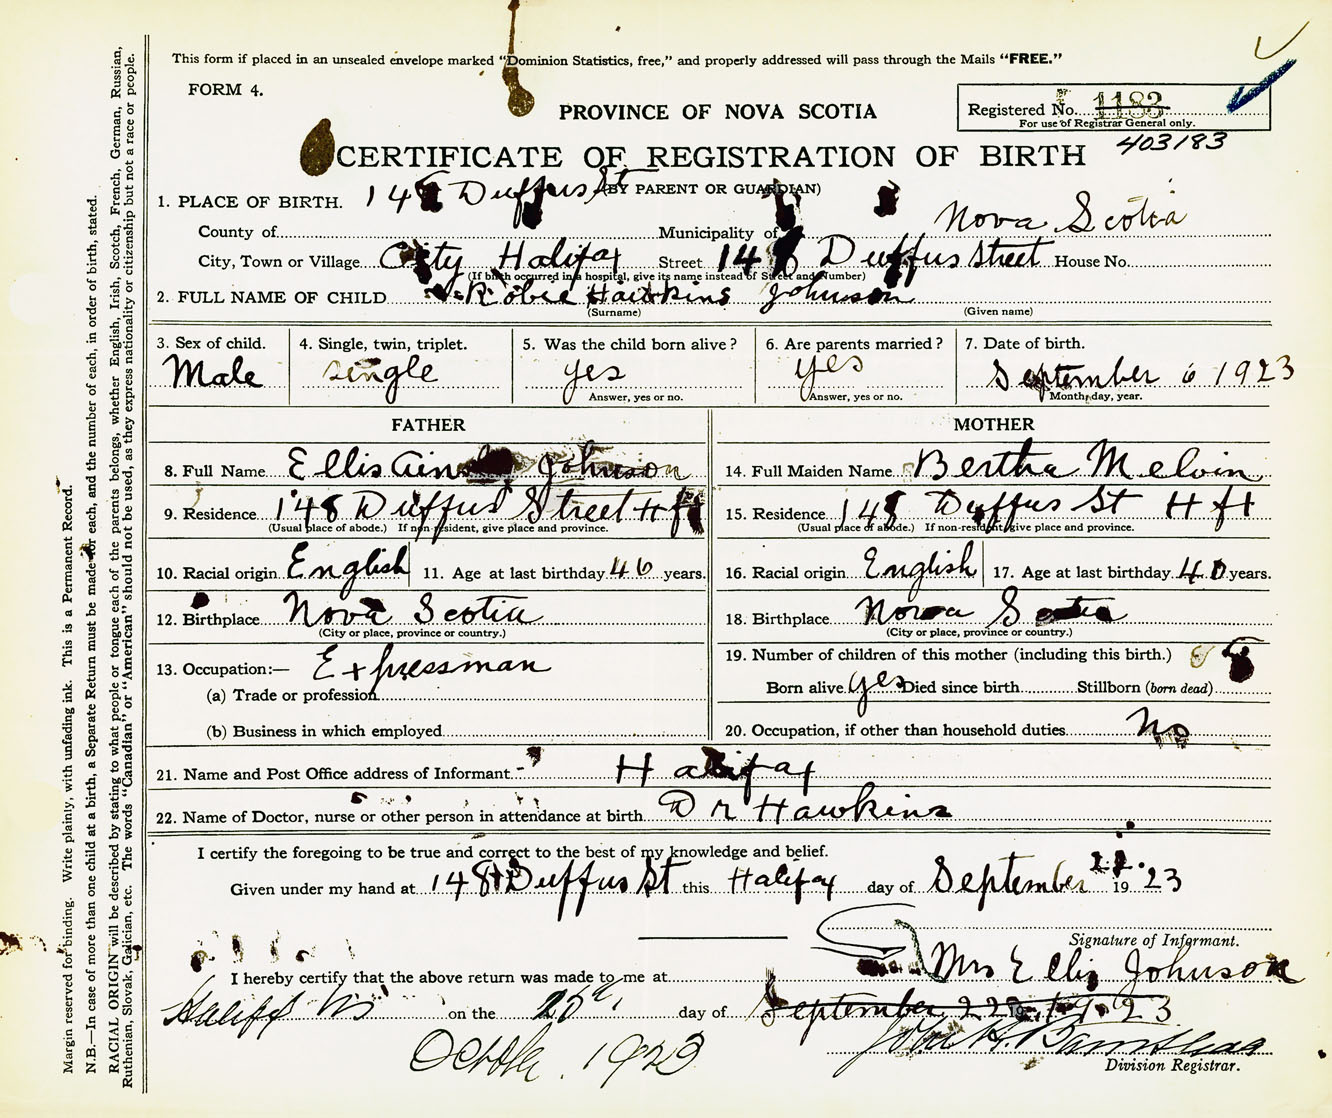 This form if placed in an unsealed envelope marked "Dominion Statistics, free," and properly addressed will pass through the Mails "FREE."
FORM 4.
PROVINCE OF NOVA SCOTIA
Registered No. 1183
For use of Registrar General only.
403183
CERTIFICATE OF REGISTRATION OF BIRTH
(BY PARENT OR GUARDIAN)
1. PLACE OF BIRTH. 148 Duffus St
County of Municipality of Nova Scotia
City, Town or Village City Halifax Street 148 Duffus Street House No.
(If birth occurred in a hospital, give its name instead of Street and Number)
2. FULL NAME OF CHILD Robie Hawkins Johnson
(Surname) (Given name)
3. Sex of child. 4. Single, twin, triplet. 5. Was the child born alive? 6. Are parents married? 7. Date of birth.
Male single yes yes September 6 1923
Answer, yes or no. Answer, yes or no. Month, day, year.
FATHER MOTHER
8. Full Name Ellis Johnson 14. Full Maiden Name Bertha Melvin
9. Residence 148 Duffus Street Hfx 15. Residence 148 Duffus St Hfx
(Usual place of abode.) If non-resident, give place and province. (Usual place of abode.) If non-resident, give place and province.
10. Racial origin English 11. Age at last birthday 46 years. 16. Racial origin English 17. Age at last birthday 40 years.
12. Birthplace Nova Scotia 18. Birthplace Nova Scotia
(City or place, province or country.) (City or place, province or country.)
13. Occupation:— Expressman 19. Number of children of this mother (including this birth.) 8
(a) Trade or profession Born alive yes Died since birth Stillborn (born dead)
(b) Business in which employed 20. Occupation, if other than household duties No
21. Name and Post Office address of Informant Halifax
22. Name of Doctor, nurse or other person in attendance at birth Dr Hawkins
I certify the foregoing to be true and correct to the best of my knowledge and belief.
Given under my hand at 148 Duffus St this Halifax day of September 22. 1923
Signature of Informant.
Mrs Ellis Johnson
I hereby certify that the above return was made to me at
Halifax NS on the 25th day of September 22 1923
October 1923
Division Registrar.
Margin reserved for binding. Write plainly, with unfading ink. This is a Permanent Record.
N.B.—In case of more than one child at a birth, a Separate Return must be made for each, and the number of each, in order of birth, stated.
RACIAL ORIGIN will be described by stating to what people or tongue each of the parents belongs, whether English, Irish, Scotch, French, German, Russian,
Ruthenian, Slovak, Galician, etc. The words "Canadian" or "American" should not be used, as they express nationality or citizenship but not a race or people.